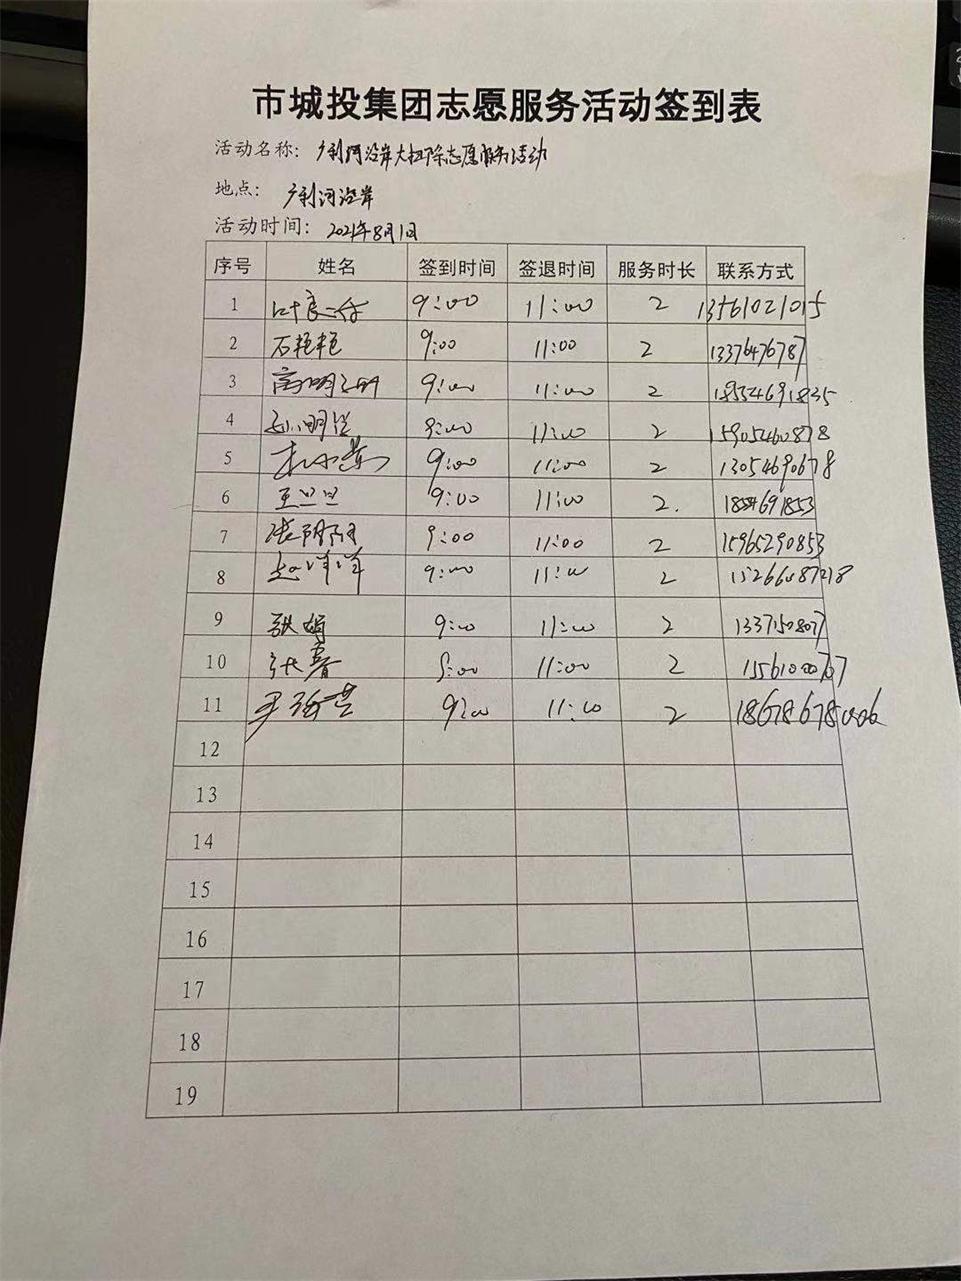 市城投集团志愿服务活动签到表
活动名称: 广利河沿岸大扫除志愿服务活动
地点: 广利河沿岸
活动时间: 2021年8月1日
序号 姓名 签到时间 签退时间 服务时长 联系方式
1 9:00 11:00 2 13561021015
2 石艳艳 9:00 11:00 2 1337647678
3 高明明 9:00 11:00 2 18554691835
4 9:00 11:00 2 15905460878
5 9:00 11:00 2 13054690678
6 王旦旦 9:00 11:00 2. 1854691853
7 9:00 11:00 2 15965290853
8 赵洋洋 9:00 11:00 2 15266087218
9 张娟 9:00 11:00 2 1337150807
10 张春 9:00 11:00 2 15561000767
11 9:00 11:00 2 18678678006
12
13
14
15
16
17
18
19